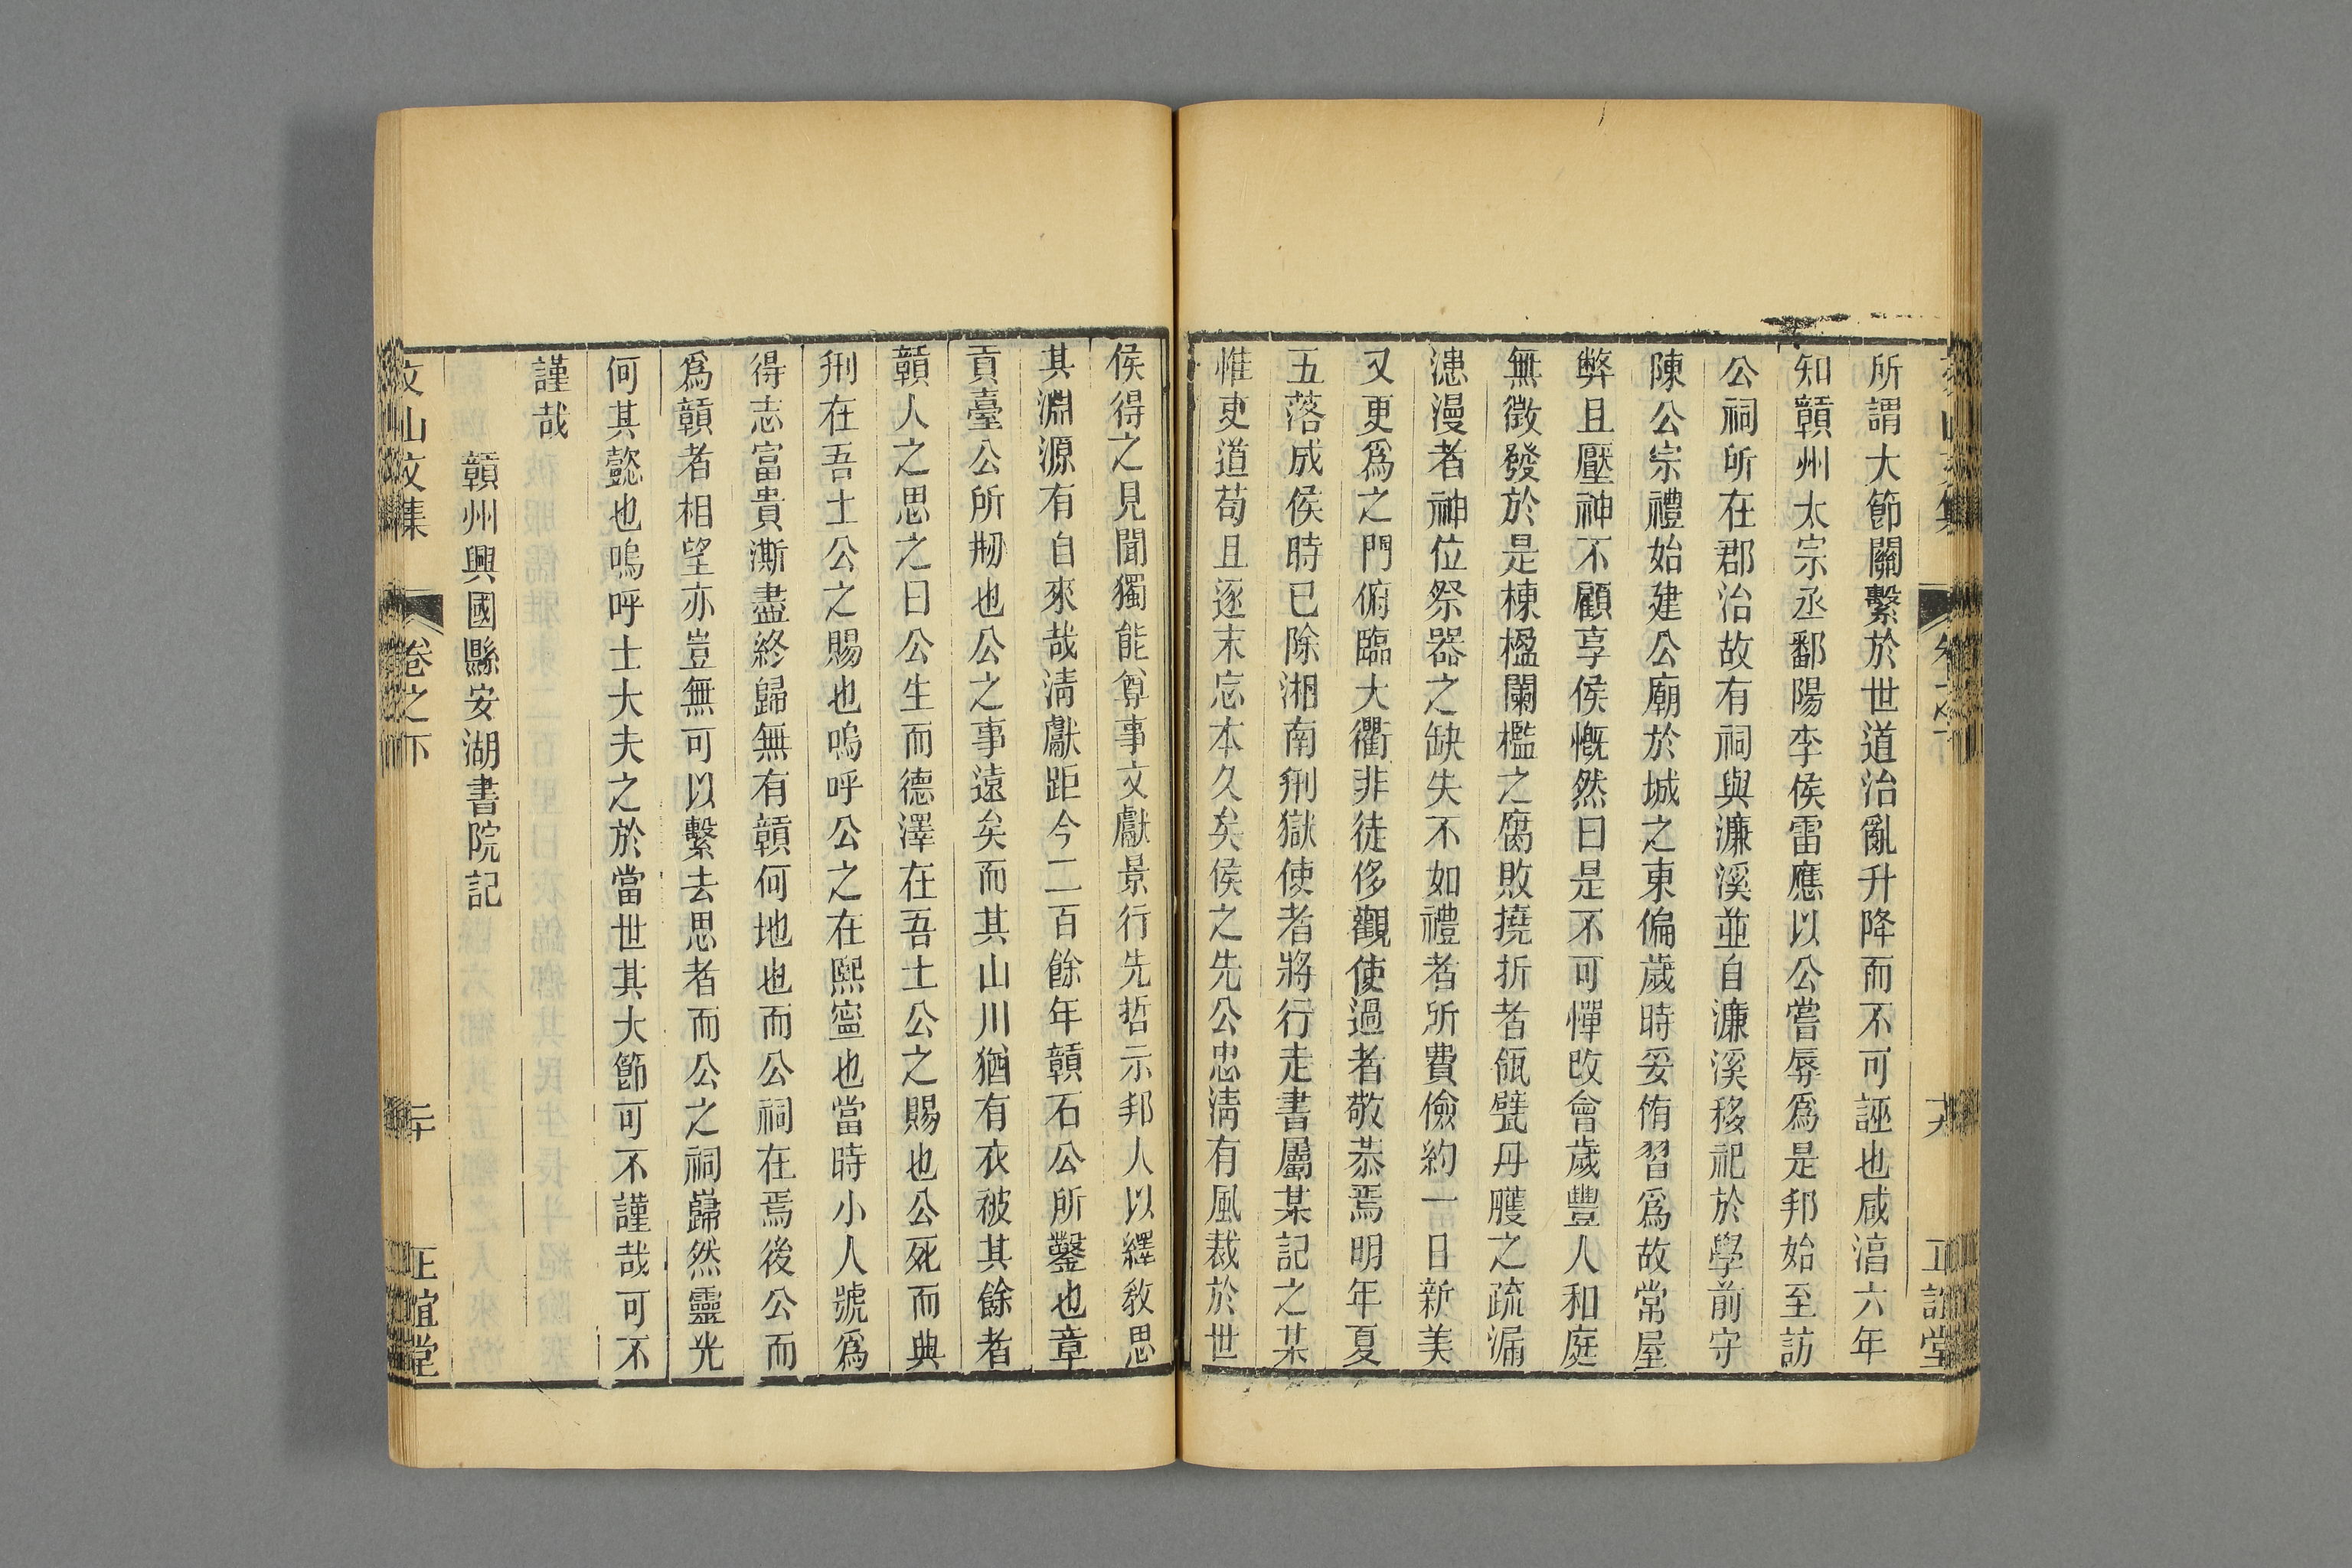 所謂大節關繫於世道治亂升降而不可誣也咸淳六年
知贑州太宗丞鄱陽李侯雷應以公嘗辱爲是邦始至訪
公祠所在郡治故有祠與濂溪並自濂溪移祀於學前守
陳公宗禮始建公廟於城之東偏歲時妥侑習爲故常屋
弊且壓神不顧享侯慨然曰是不可憚改會歲豐人和庭
無徵發於是棟楹闌檻之腐敗撓折者瓴甓丹雘之疏漏
漶漫者神位祭器之缺失不如禮者所費儉約一日新美
又更爲之門俯臨大衢非徒侈觀使過者敬恭焉明年夏
五落成侯時已除湘南刑獄使者將行走書屬某記之某
惟吏道苟且逐末忘本久矣侯之先公忠清有風裁於世
侯得之見聞獨能尊事文獻景行先哲示邦人以繹敎思
其淵源有自來哉清獻距今二百餘年贑石公所鑿也章
貢臺公所剏也公之事遠矣而其山川猶有衣被其餘者
贑人之思之曰公生而德澤在吾土公之賜也公死而典
刑在吾土公之賜也嗚呼公之在熙寧也當時小人號爲
得志富貴澌盡終歸無有贑何地也而公祠在焉後公而
爲贑者相望亦豈無可以繫去思者而公之祠巋然靈光
何其懿也嗚呼士大夫之於當世其大節可不謹哉可不
謹哉
贑州興國縣安湖書院記
文山文集
卷之下
二十
正誼堂